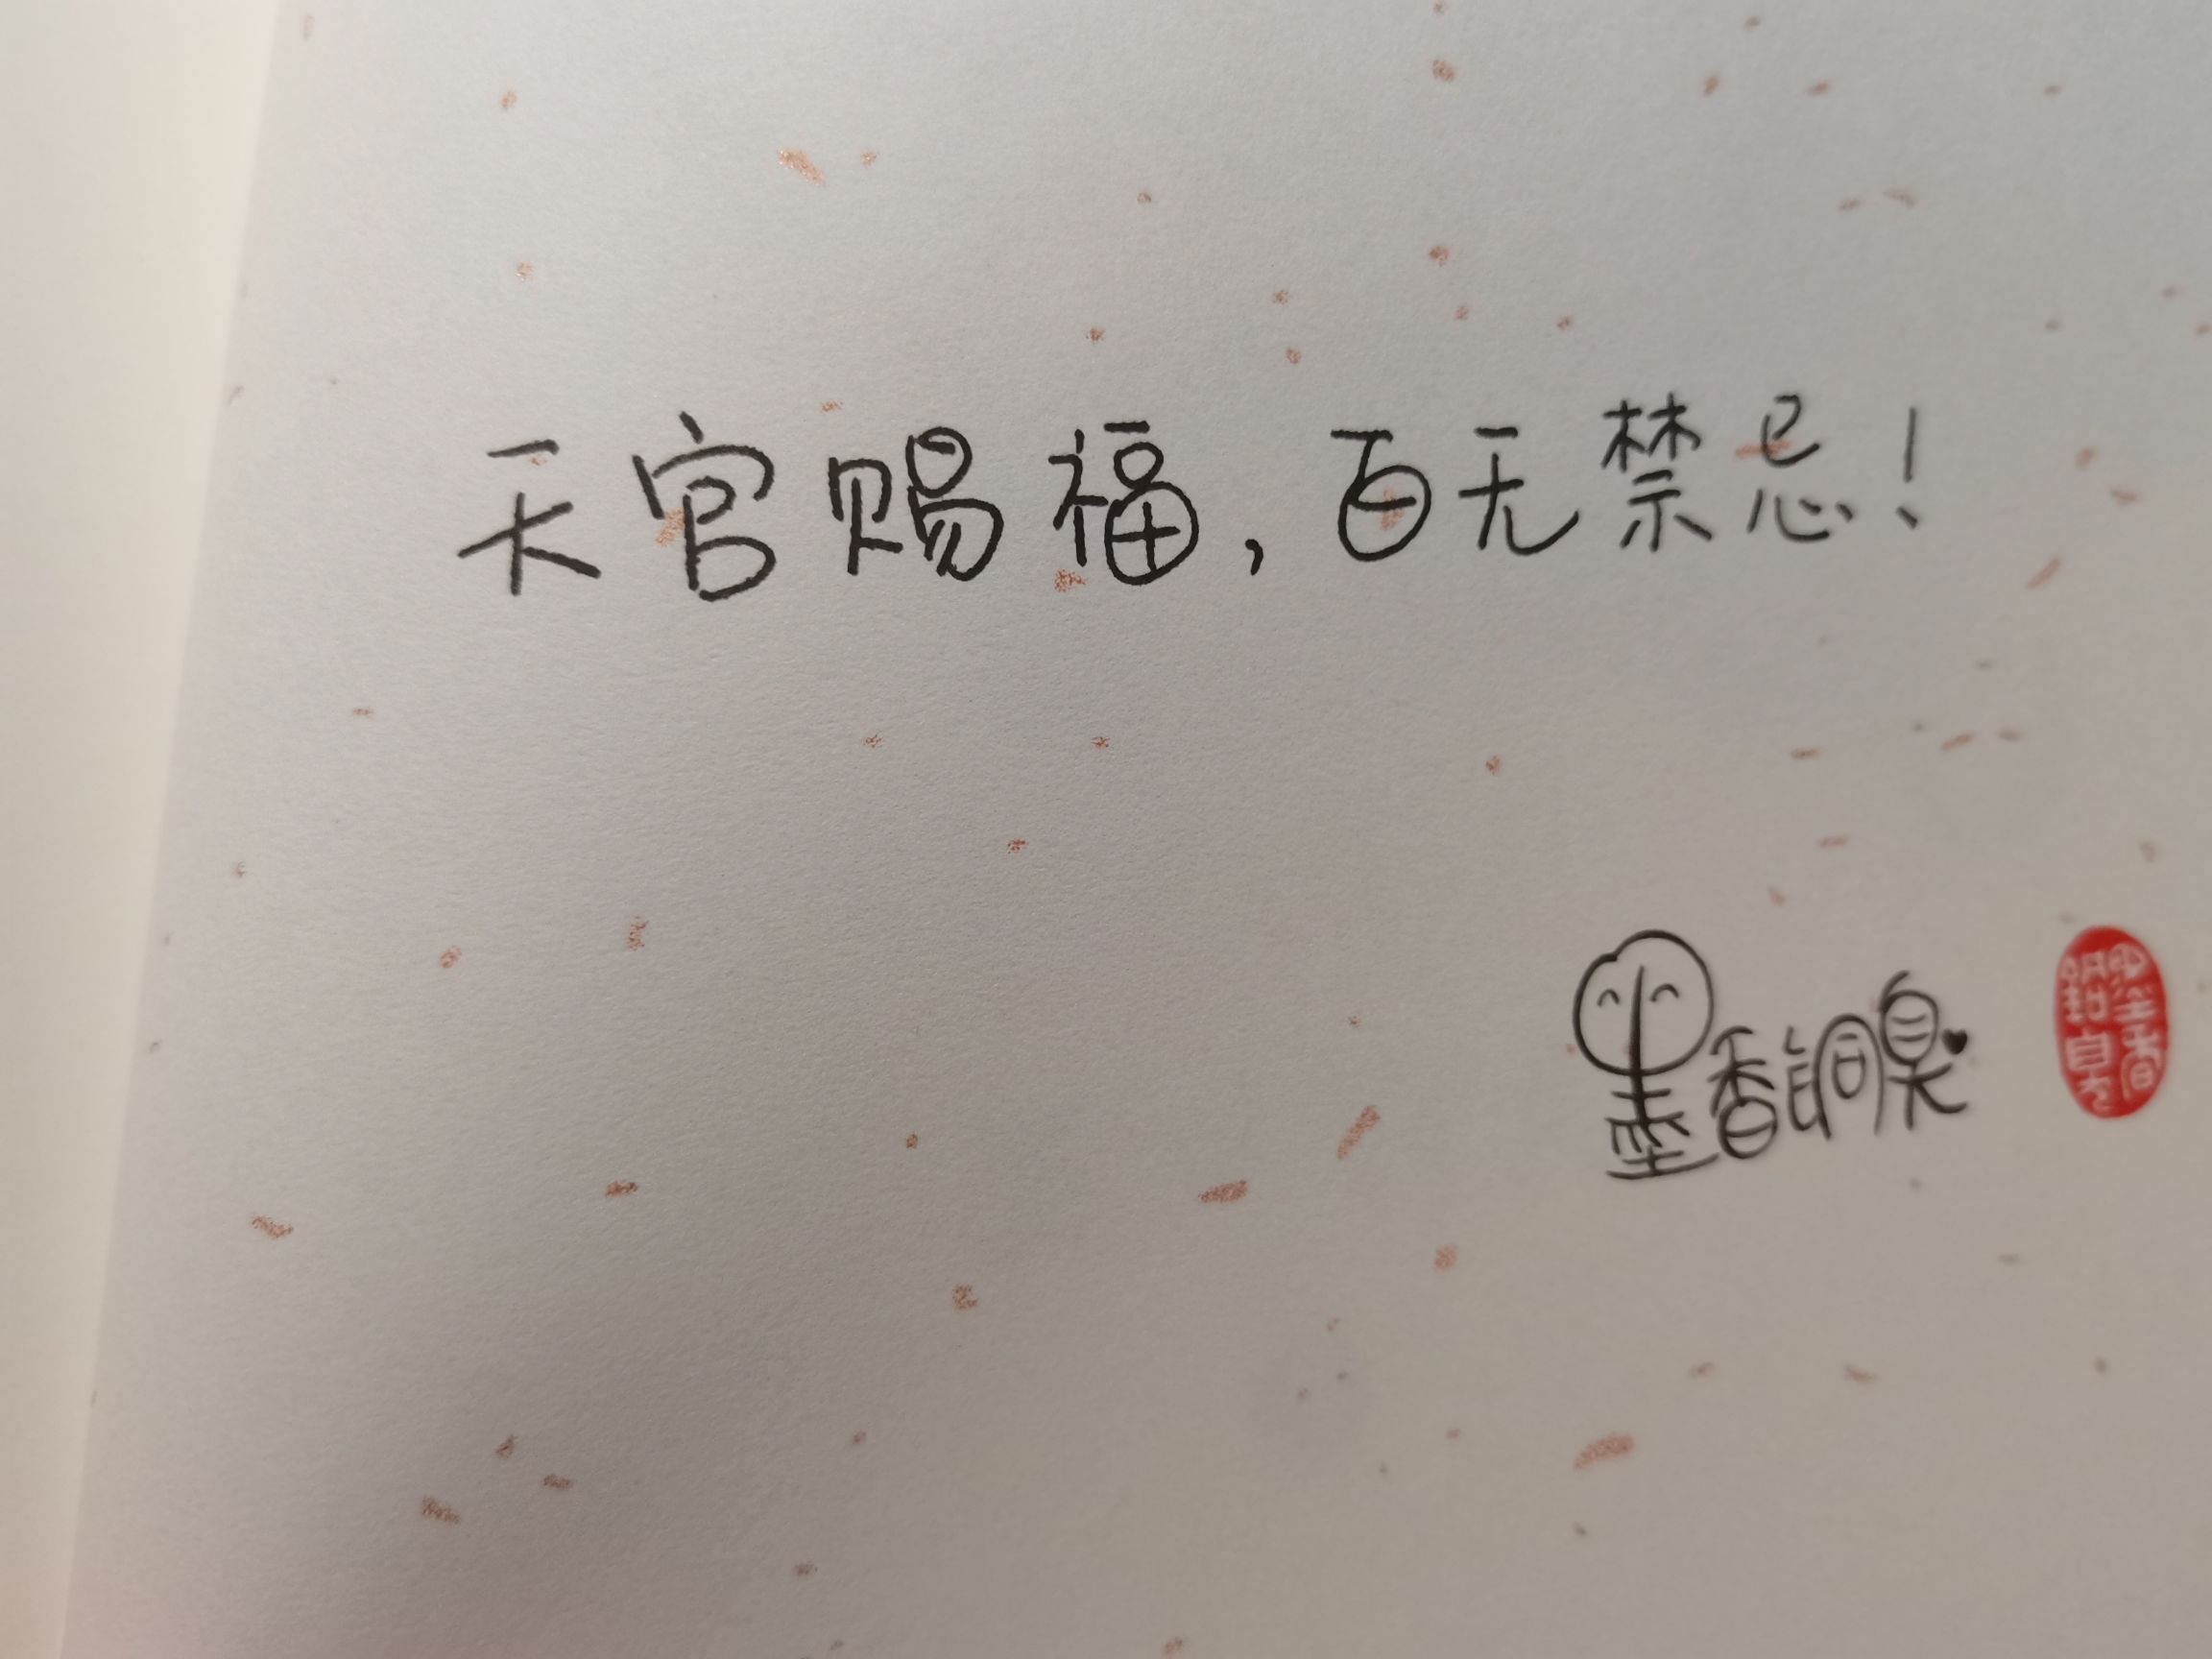 天官赐福，百无禁忌！
墨香铜臭
墨香銅臭